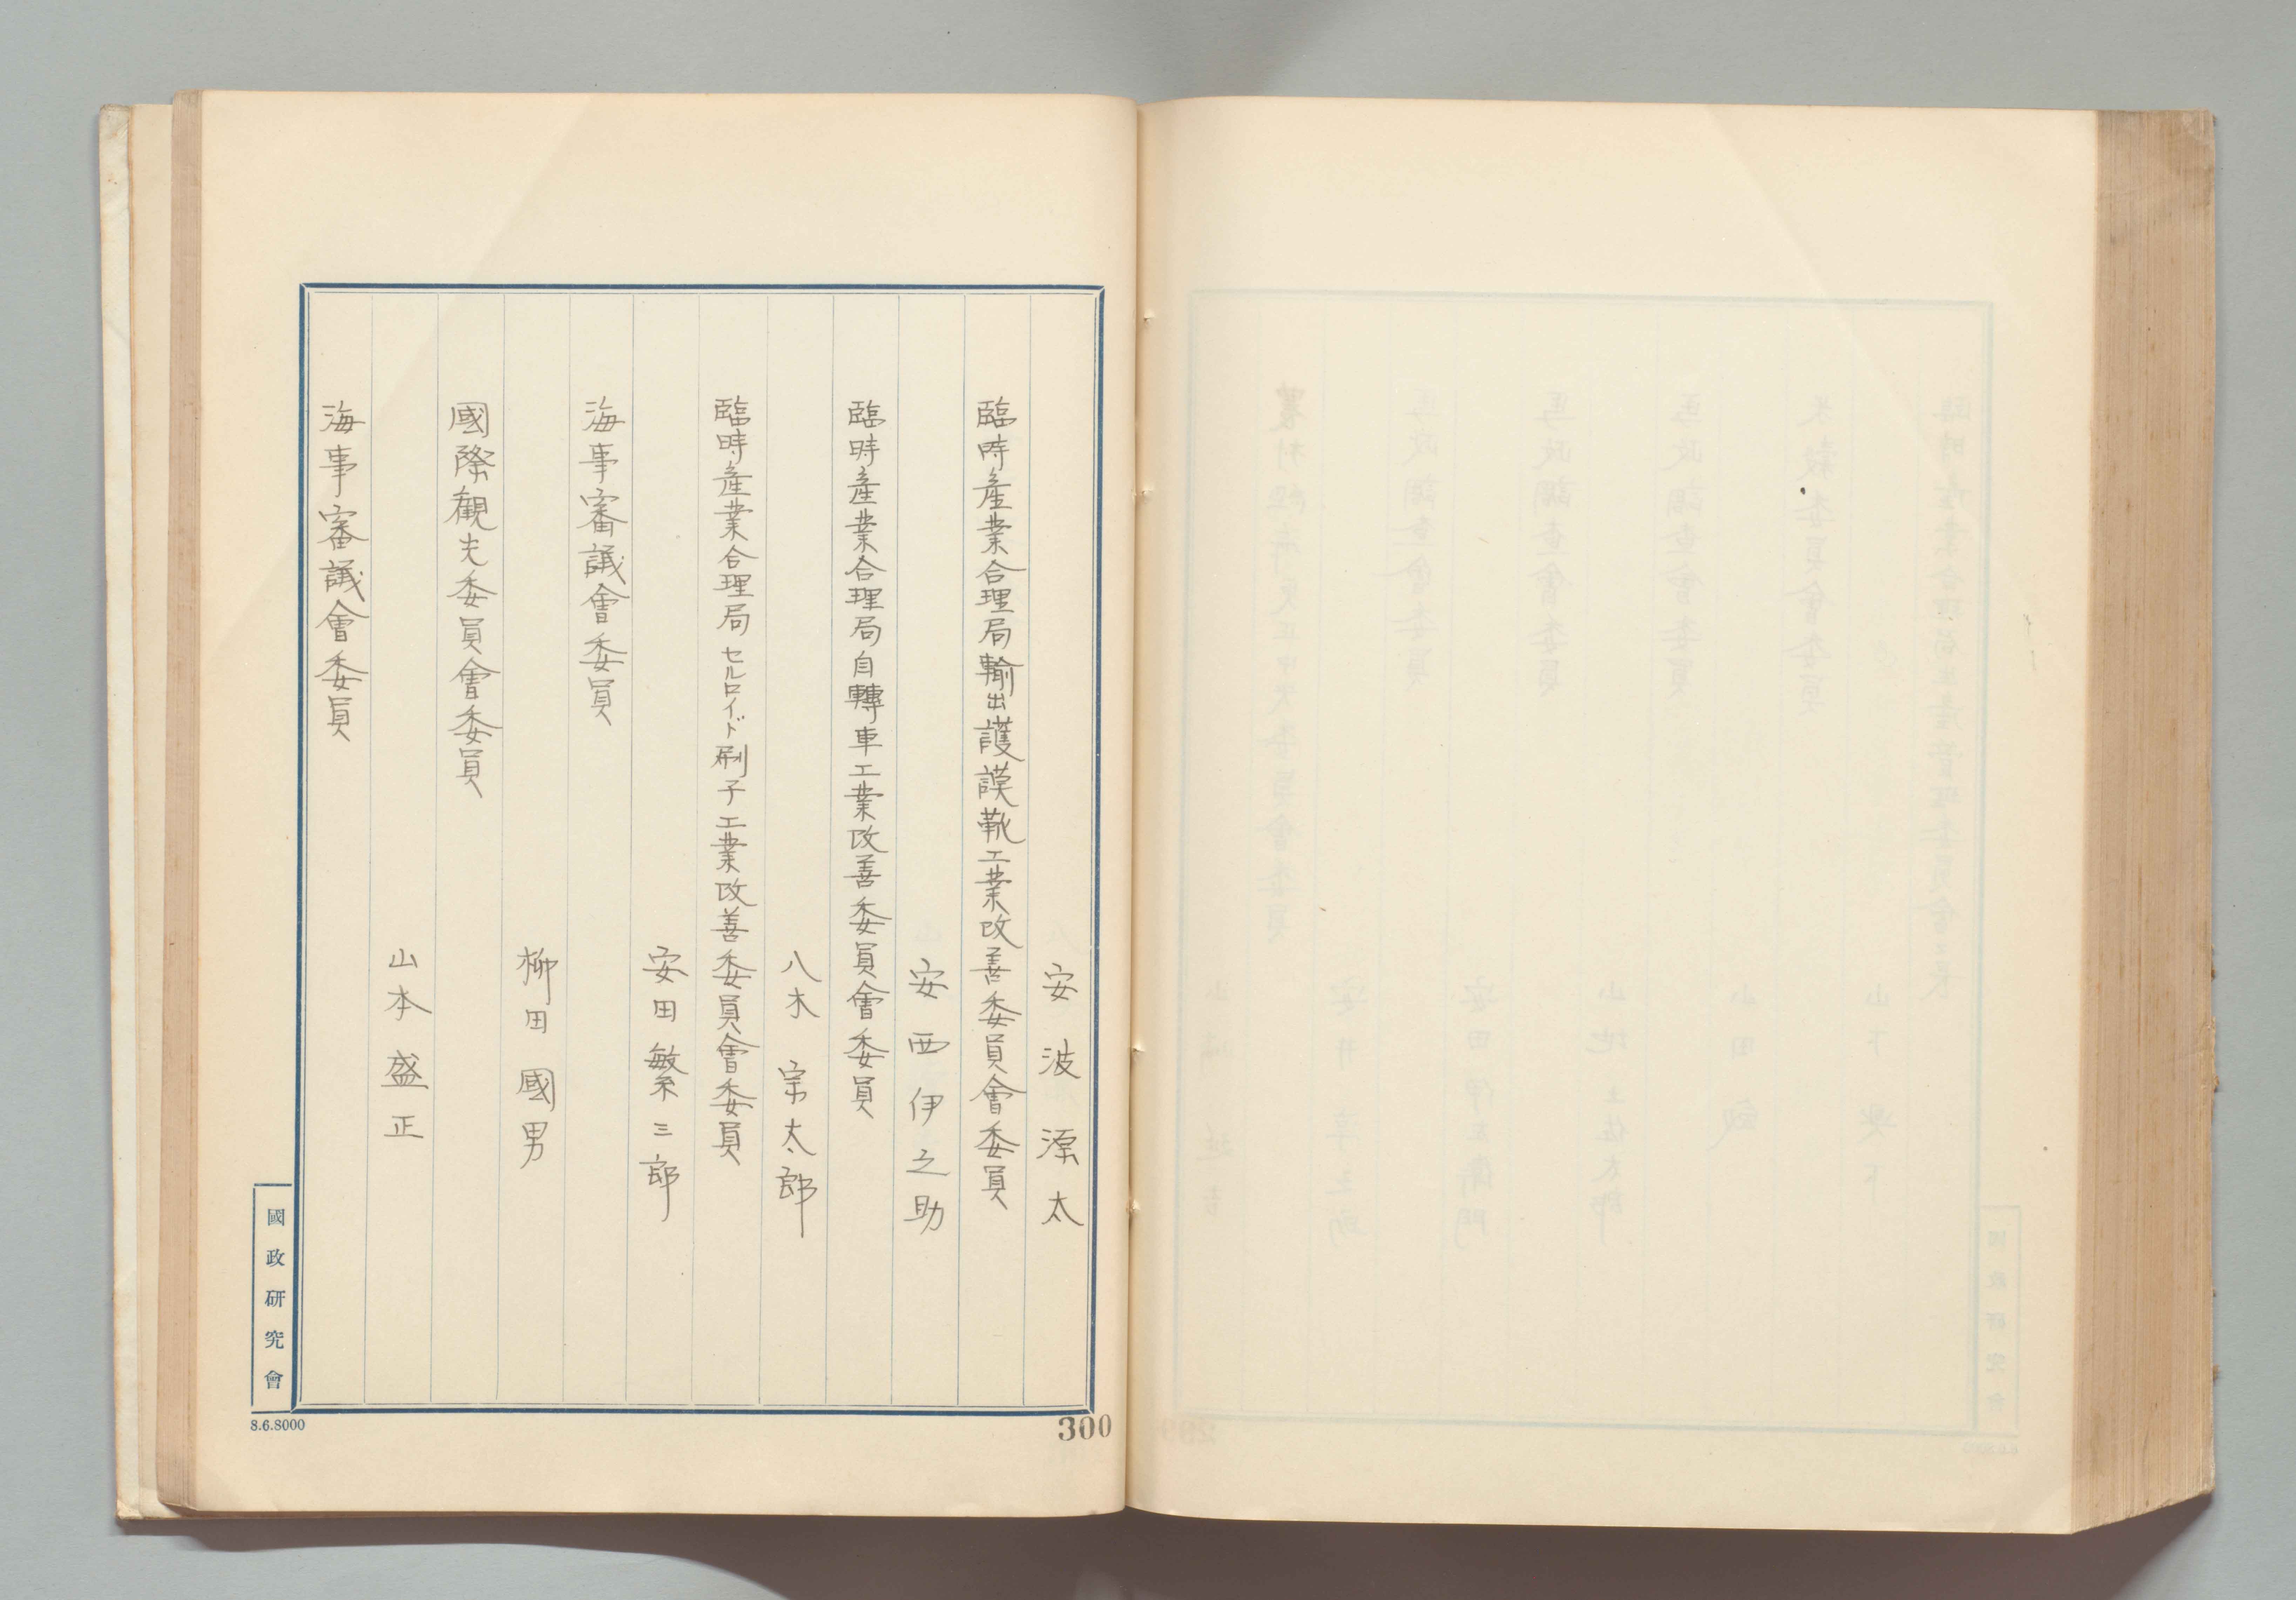 安波源太
臨時產業合理局輸出護謨靴工業改善委員會委員
安西伊之助
臨時產業合理局自轉車工業改善委員會委員
八木宗太郎
臨時產業合理局セルロイド刷子工業改善委員會委員
安田繁三郎
海事審議會委員
柳田國男
國際觀光委員會委員
山本盛正
海事審議會委員
國政研究會
8.6.8000
300